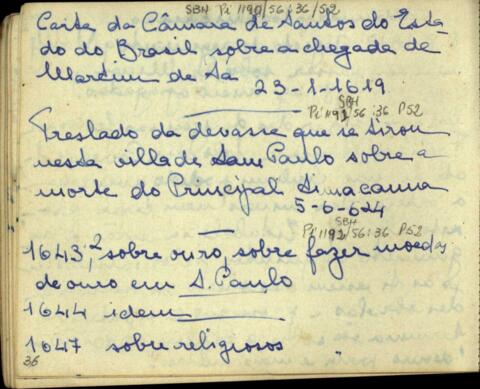 SBH Pi 1190/56:36/52
Carta da Câmara de Santos do Esta-
do do Brasil sobre a chegada de
Martim de Sá 23-1-1619
SBH
Pi 1192/56:36 P52
Treslado da devasse que se tirou
nesta villa de Sam Paulo sobre a
morte do Principal Timacauna
5-6-624
SBH
Pi 1192/56:36 P52
1643,2 sobre ouro, sobre fazer moedas
de ouro em S. Paulo
1644 idem
1647 sobre religiosos
36